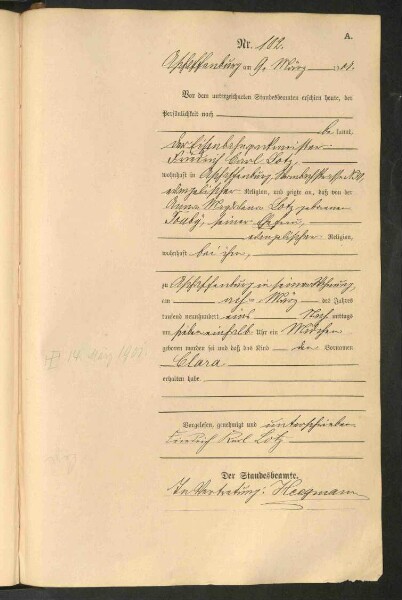 A.
Nr. 102.
Aschaffenburg am 9. März 1901.
Vor dem unterzeichneten Standesbeamten erschien heute, der
Persönlichkeit nach
be kannt,
der
Friedrich Carl Lotz,
wohnhaft in Aschaffenburg
evangelischer Religion, und zeigte an, daß von der
Anna Magdalena Lotz geborenen
seiner Ehefrau,
evangelischer Religion,
wohnhaft bei ihm,
zu Aschaffenburg in seiner Wohnung
am März des Jahres
tausend neunhundert eins Nach mittags
um sieben einhalb Uhr ein Mädchen
geboren worden sei und daß das Kind den Vornamen
Clara
erhalten habe
Vorgelesen, genehmigt und unterschrieben
Friedrich Karl Lotz
Der Standesbeamte.
In Vertretung: Heegmann